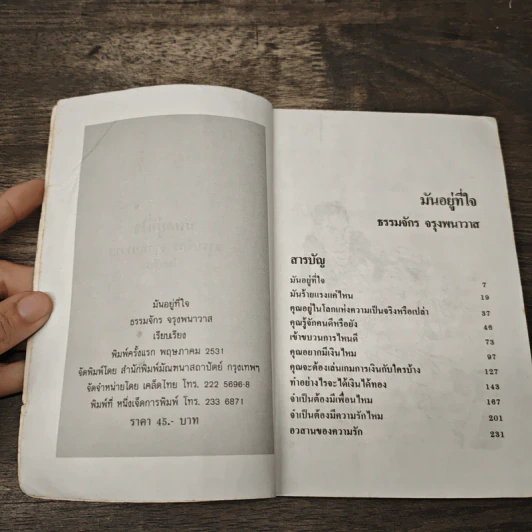 มันอยู่ที่ใจ
ธรรมจักร จรุงพนาวาส
เรียบเรียง
พิมพ์ครั้งแรก พฤษภาคม 2531
จัดพิมพ์โดย สำนักพิมพ์มัณฑนาสถาปัตย์ กรุงเทพฯ
จัดจำหน่ายโดย เคล็ดไทย โทร. 222 5698-8
พิมพ์ที่ หนึ่งเจ็ดการพิมพ์ โทร. 233 6871
ราคา 45.- บาท
มันอยู่ที่ใจ
ธรรมจักร จรุงพนาวาส
สารบัญ
มันอยู่ที่ใจ 7
มันร้ายแรงแค่ไหน 19
คุณอยู่ในโลกแห่งความเป็นจริงหรือเปล่า 37
คุณรู้จักคนดีหรือยัง 46
เข้าขบวนการไหนดี 73
คุณอยากมีเงินไหม 97
คุณจะต้องเล่นเกมการเงินกับใครบ้าง 127
ทำอย่างไรจะได้เงินได้ทอง 143
จำเป็นต้องมีเพื่อนไหม 167
จำเป็นต้องมีความรักไหม 201
อวสานของความรัก 231